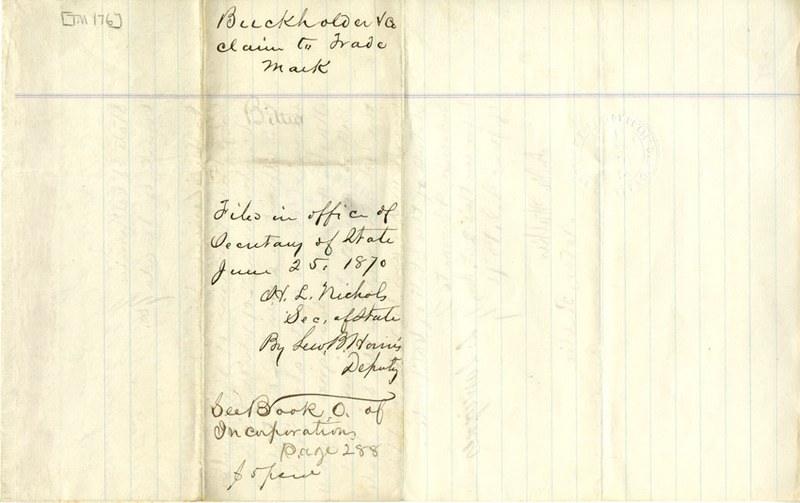 [TM 176]
Buckholder & Co
claim to Trade
Mark
Billed
Filed in office of
Secretary of State
June 25. 1870
H. L. Nichols
Sec. of State
By Lew. B. Harris
Deputy
See Book O. of
Incorporations
Page 288